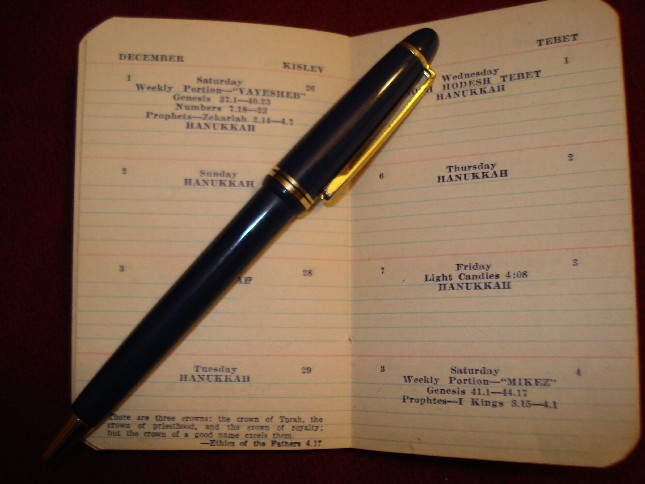 DECEMBER KISLEV
1 Saturday 26
Weekly Portion—"VAYESHEB"
Genesis 37.1—40.23
Numbers 7.18—23
Prophets—Zekariah 2.14—4.7
HANUKKAH
2 Sunday
HANUKKAH
3 28
AH
Tuesday 29
HANUKKAH
There are three crowns: the crown of Torah, the
crown of priesthood, and the crown of royalty;
but the crown of a good name excels them.
—Ethics of the Fathers 4.17
TEBET
Wednesday 1
HODESH TEBET
HANUKKAH
6 Thursday 2
HANUKKAH
7 Friday 3
Light Candles 4:08
HANUKKAH
8 Saturday 4
Weekly Portion—"MIKEZ"
Genesis 41.1—44.17
Prophtes—I Kings 3.15—4.1